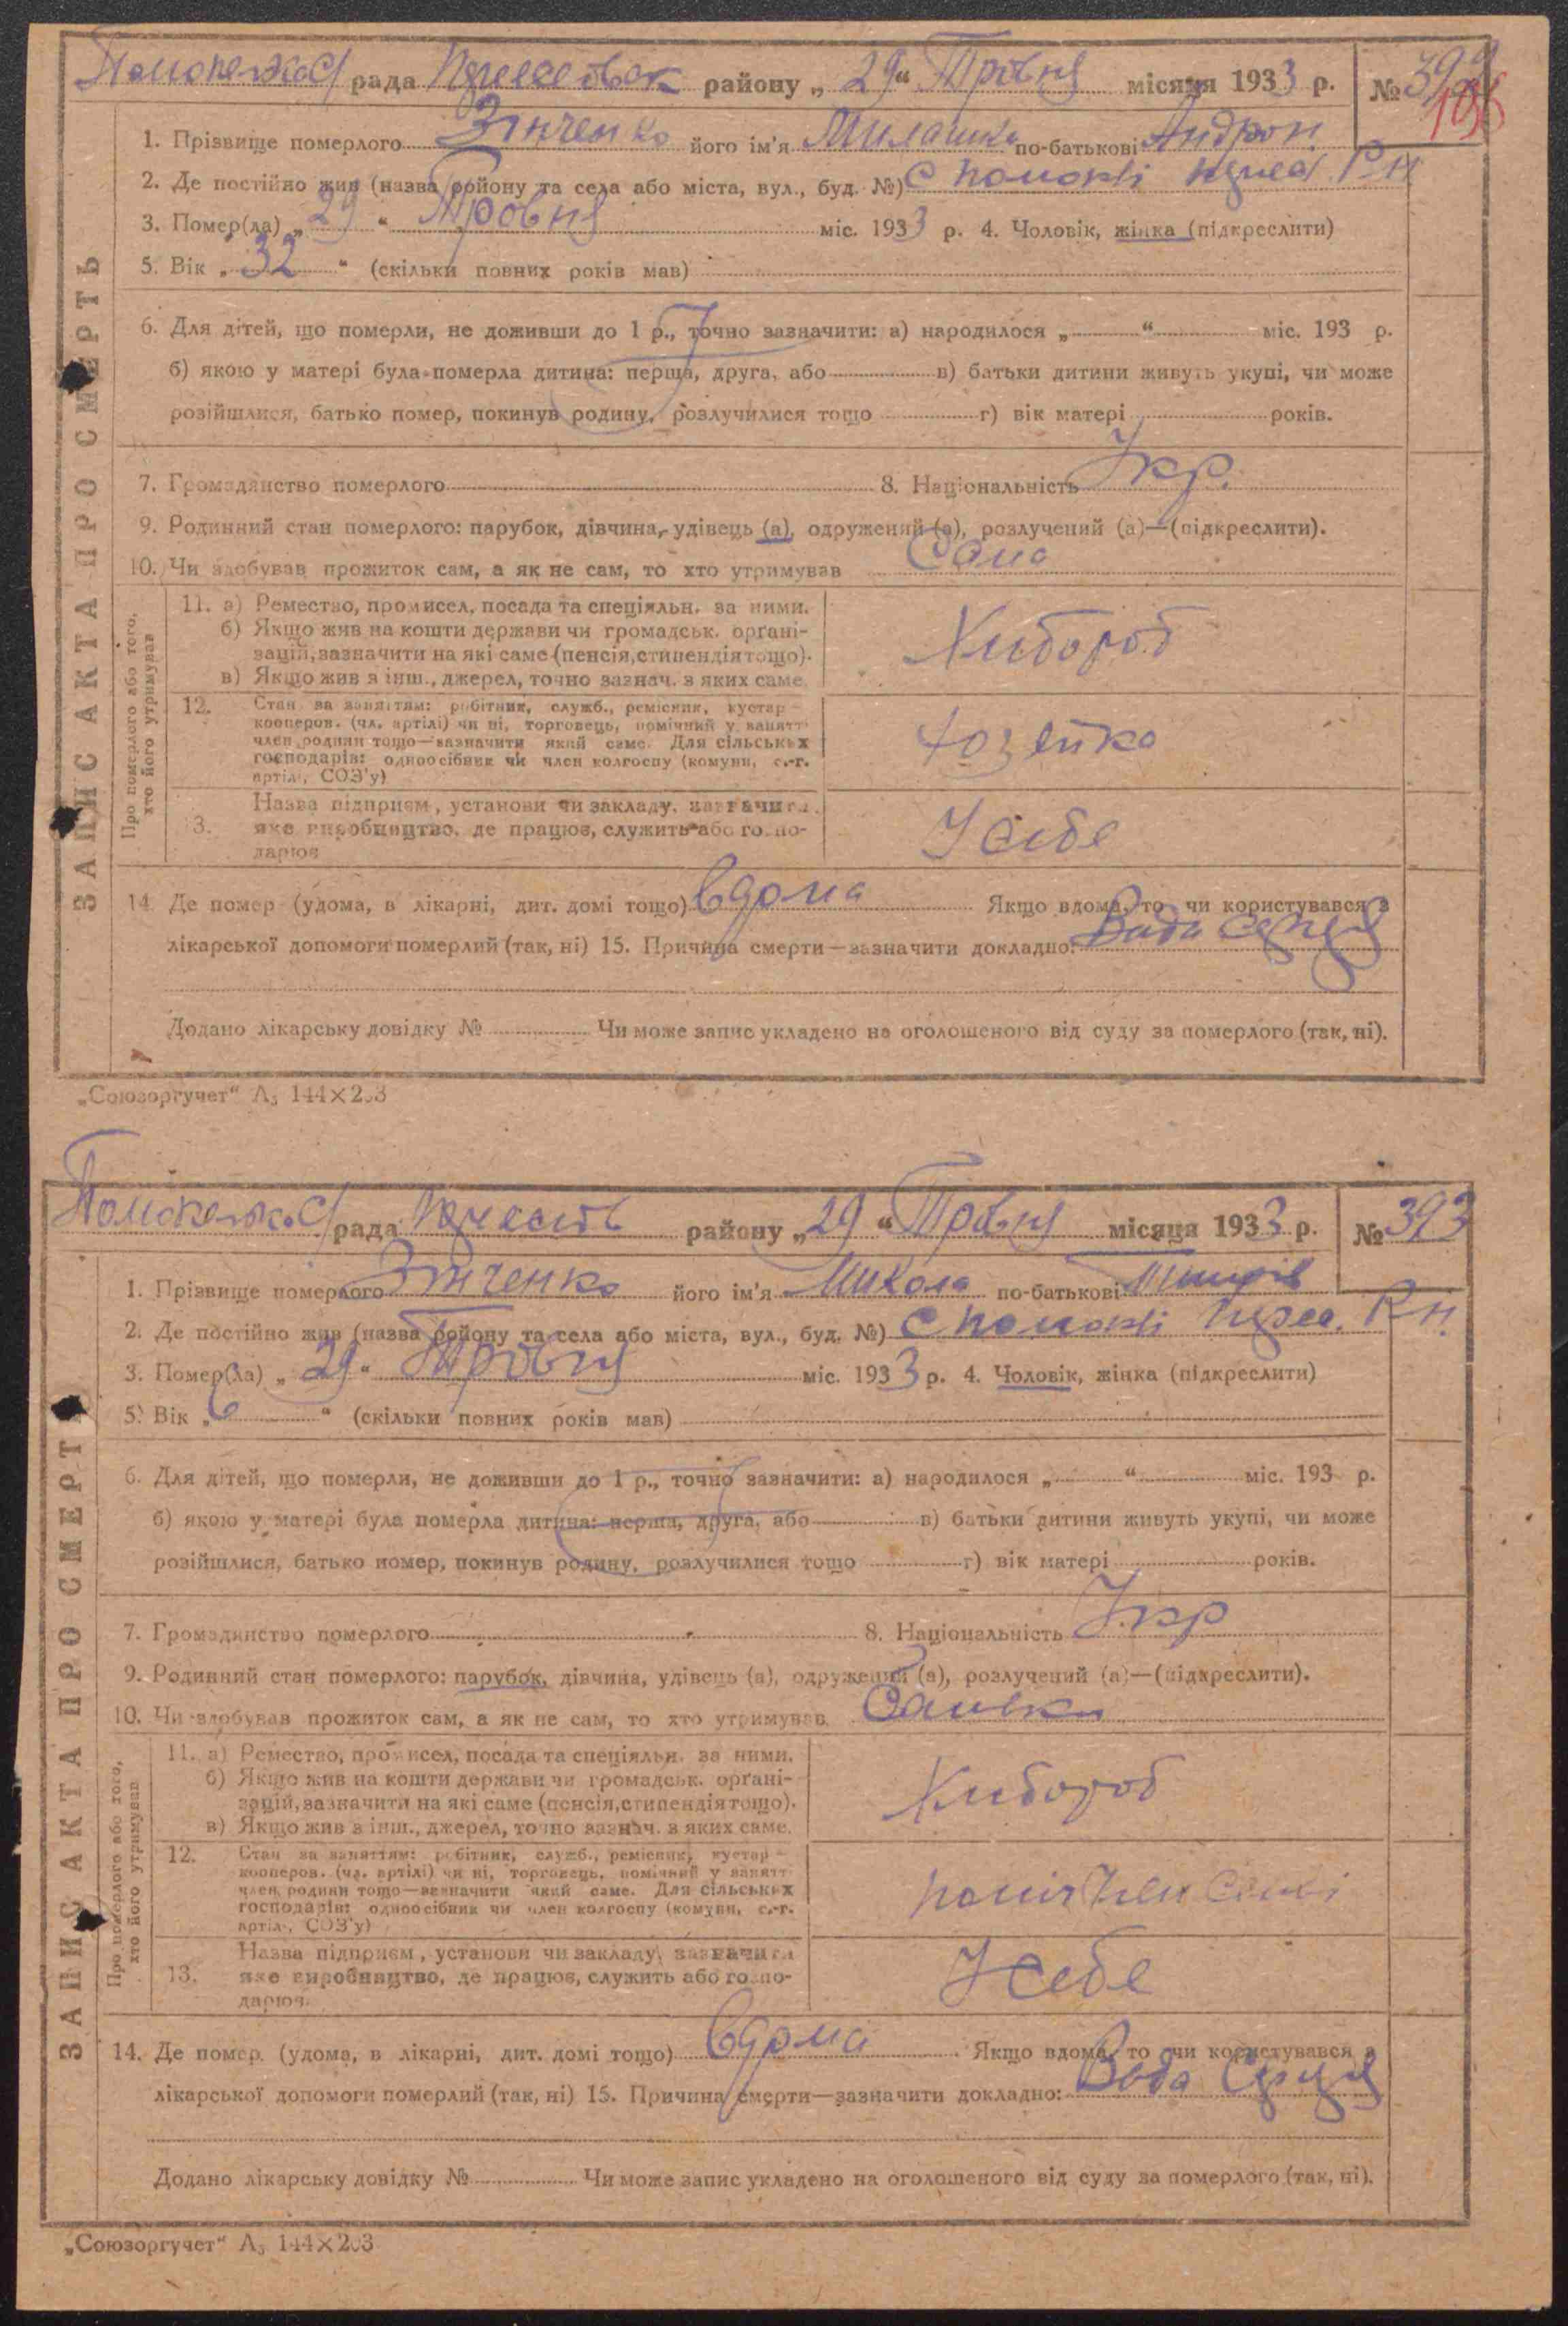 рада району „ 29 “ Травня місяця 1933 р. №
1. Прізвище померлого Зінченко його ім'я по-батькові Андрон.
2. Де постійно жив (назва району та села або міста, вул., буд. №) с
3. Помер(ла) „ 29 “ Травня міс. 1933 р. 4. Чоловік, жінка (підкреслити)
5. Вік „ 32 “ (скільки повних років мав)
6. Для дітей, що померли, не доживши до 1 р., точно зазначити: а) народилося „ “ міс. 193 р.
б) якою у матері була померла дитина: перша, друга, або в) батьки дитини живуть укупі, чи може
розійшлися, батько помер, покинув родину, розлучилися тощо г) вік матері років.
7. Громадянство померлого 8. Національність Укр.
9. Родинний стан померлого: парубок, дівчина, удівець (а), одружений (а), розлучений (а)—(підкреслити).
10. Чи здобував прожиток сам, а як не сам, то хто утримував Сама
ЗАПИС АКТА ПРО СМЕРТЬ
Про померлого або того, хто його утримував
11. а) Ремество, промисел, посада та спеціяльн. за ними.
б) Якщо жив на кошти держави чи громадськ. органі-
зацій, зазначити на які саме (пенсія, стипендія тощо).
в) Якщо жив з інш., джерел, точно зазнач. з яких саме.
Хлібороб
12. Стан за заняттям: робітник, служб., ремісник, кустар—
кооперов. (чл. артілі) чи ні, торговець, помічний у занятт.
член родини тощо—зазначити який саме. Для сільських
господарів: одноосібник чи член колгоспу (комуни, с.-г.
артілі, СОЗ'у)
Хозяйка
13. Назва підприєм., установи чи закладу, зазначити
яке виробництво, де працює, служить або госпо-
дарює
У себе
14. Де помер (удома, в лікарні, дит. домі тощо) вдома Якщо вдома, то чи користувався з
лікарської допомоги померлий (так, ні) 15. Причина смерти—зазначити докладно: Вада серця
Додано лікарську довідку № Чи може запис укладено на оголошеного від суду за померлого (так, ні).
„Союзоргучет“ А₅ 144×203
рада району „ 29 “ Травня місяця 1933 р. № 393
1. Прізвище померлого Зінченко його ім'я Микола по-батькові
2. Де постійно жив (назва району та села або міста, вул., буд. №) с
3. Помер(ла) „ 29 “ Травня міс. 1933 р. 4. Чоловік, жінка (підкреслити)
5. Вік „ 6 “ (скільки повних років мав)
6. Для дітей, що померли, не доживши до 1 р., точно зазначити: а) народилося „ “ міс. 193 р.
б) якою у матері була померла дитина: перша, друга, або в) батьки дитини живуть укупі, чи може
розійшлися, батько помер, покинув родину, розлучилися тощо г) вік матері років.
7. Громадянство померлого 8. Національність Укр
9. Родинний стан померлого: парубок, дівчина, удівець (а), одружений (а), розлучений (а)—(підкреслити).
10. Чи здобував прожиток сам, а як не сам, то хто утримував
ЗАПИС АКТА ПРО СМЕРТЬ
Про померлого або того, хто його утримував
11. а) Ремество, промисел, посада та спеціяльн. за ними.
б) Якщо жив на кошти держави чи громадськ. органі-
зацій, зазначити на які саме (пенсія, стипендія тощо).
в) Якщо жив з інш., джерел, точно зазнач. з яких саме.
Хлібороб
12. Стан за заняттям: робітник, служб., ремісник, кустар—
кооперов. (чл. артілі) чи ні, торговець, помічний у занятт.
член родини тощо—зазначити який саме. Для сільських
господарів: одноосібник чи член колгоспу (комуни, с.-г.
артілі, СОЗ'у)
13. Назва підприєм., установи чи закладу, зазначити
яке виробництво, де працює, служить або госпо-
дарює.
У себе
14. Де помер. (удома, в лікарні, дит. домі тощо) вдома Якщо вдома, то чи користувався з
лікарської допомоги померлий (так, ні) 15. Причина смерти—зазначити докладно: Вада Серця
Додано лікарську довідку № Чи може запис укладено на оголошеного від суду за померлого (так, ні).
„Союзоргучет“ А₅ 144×203